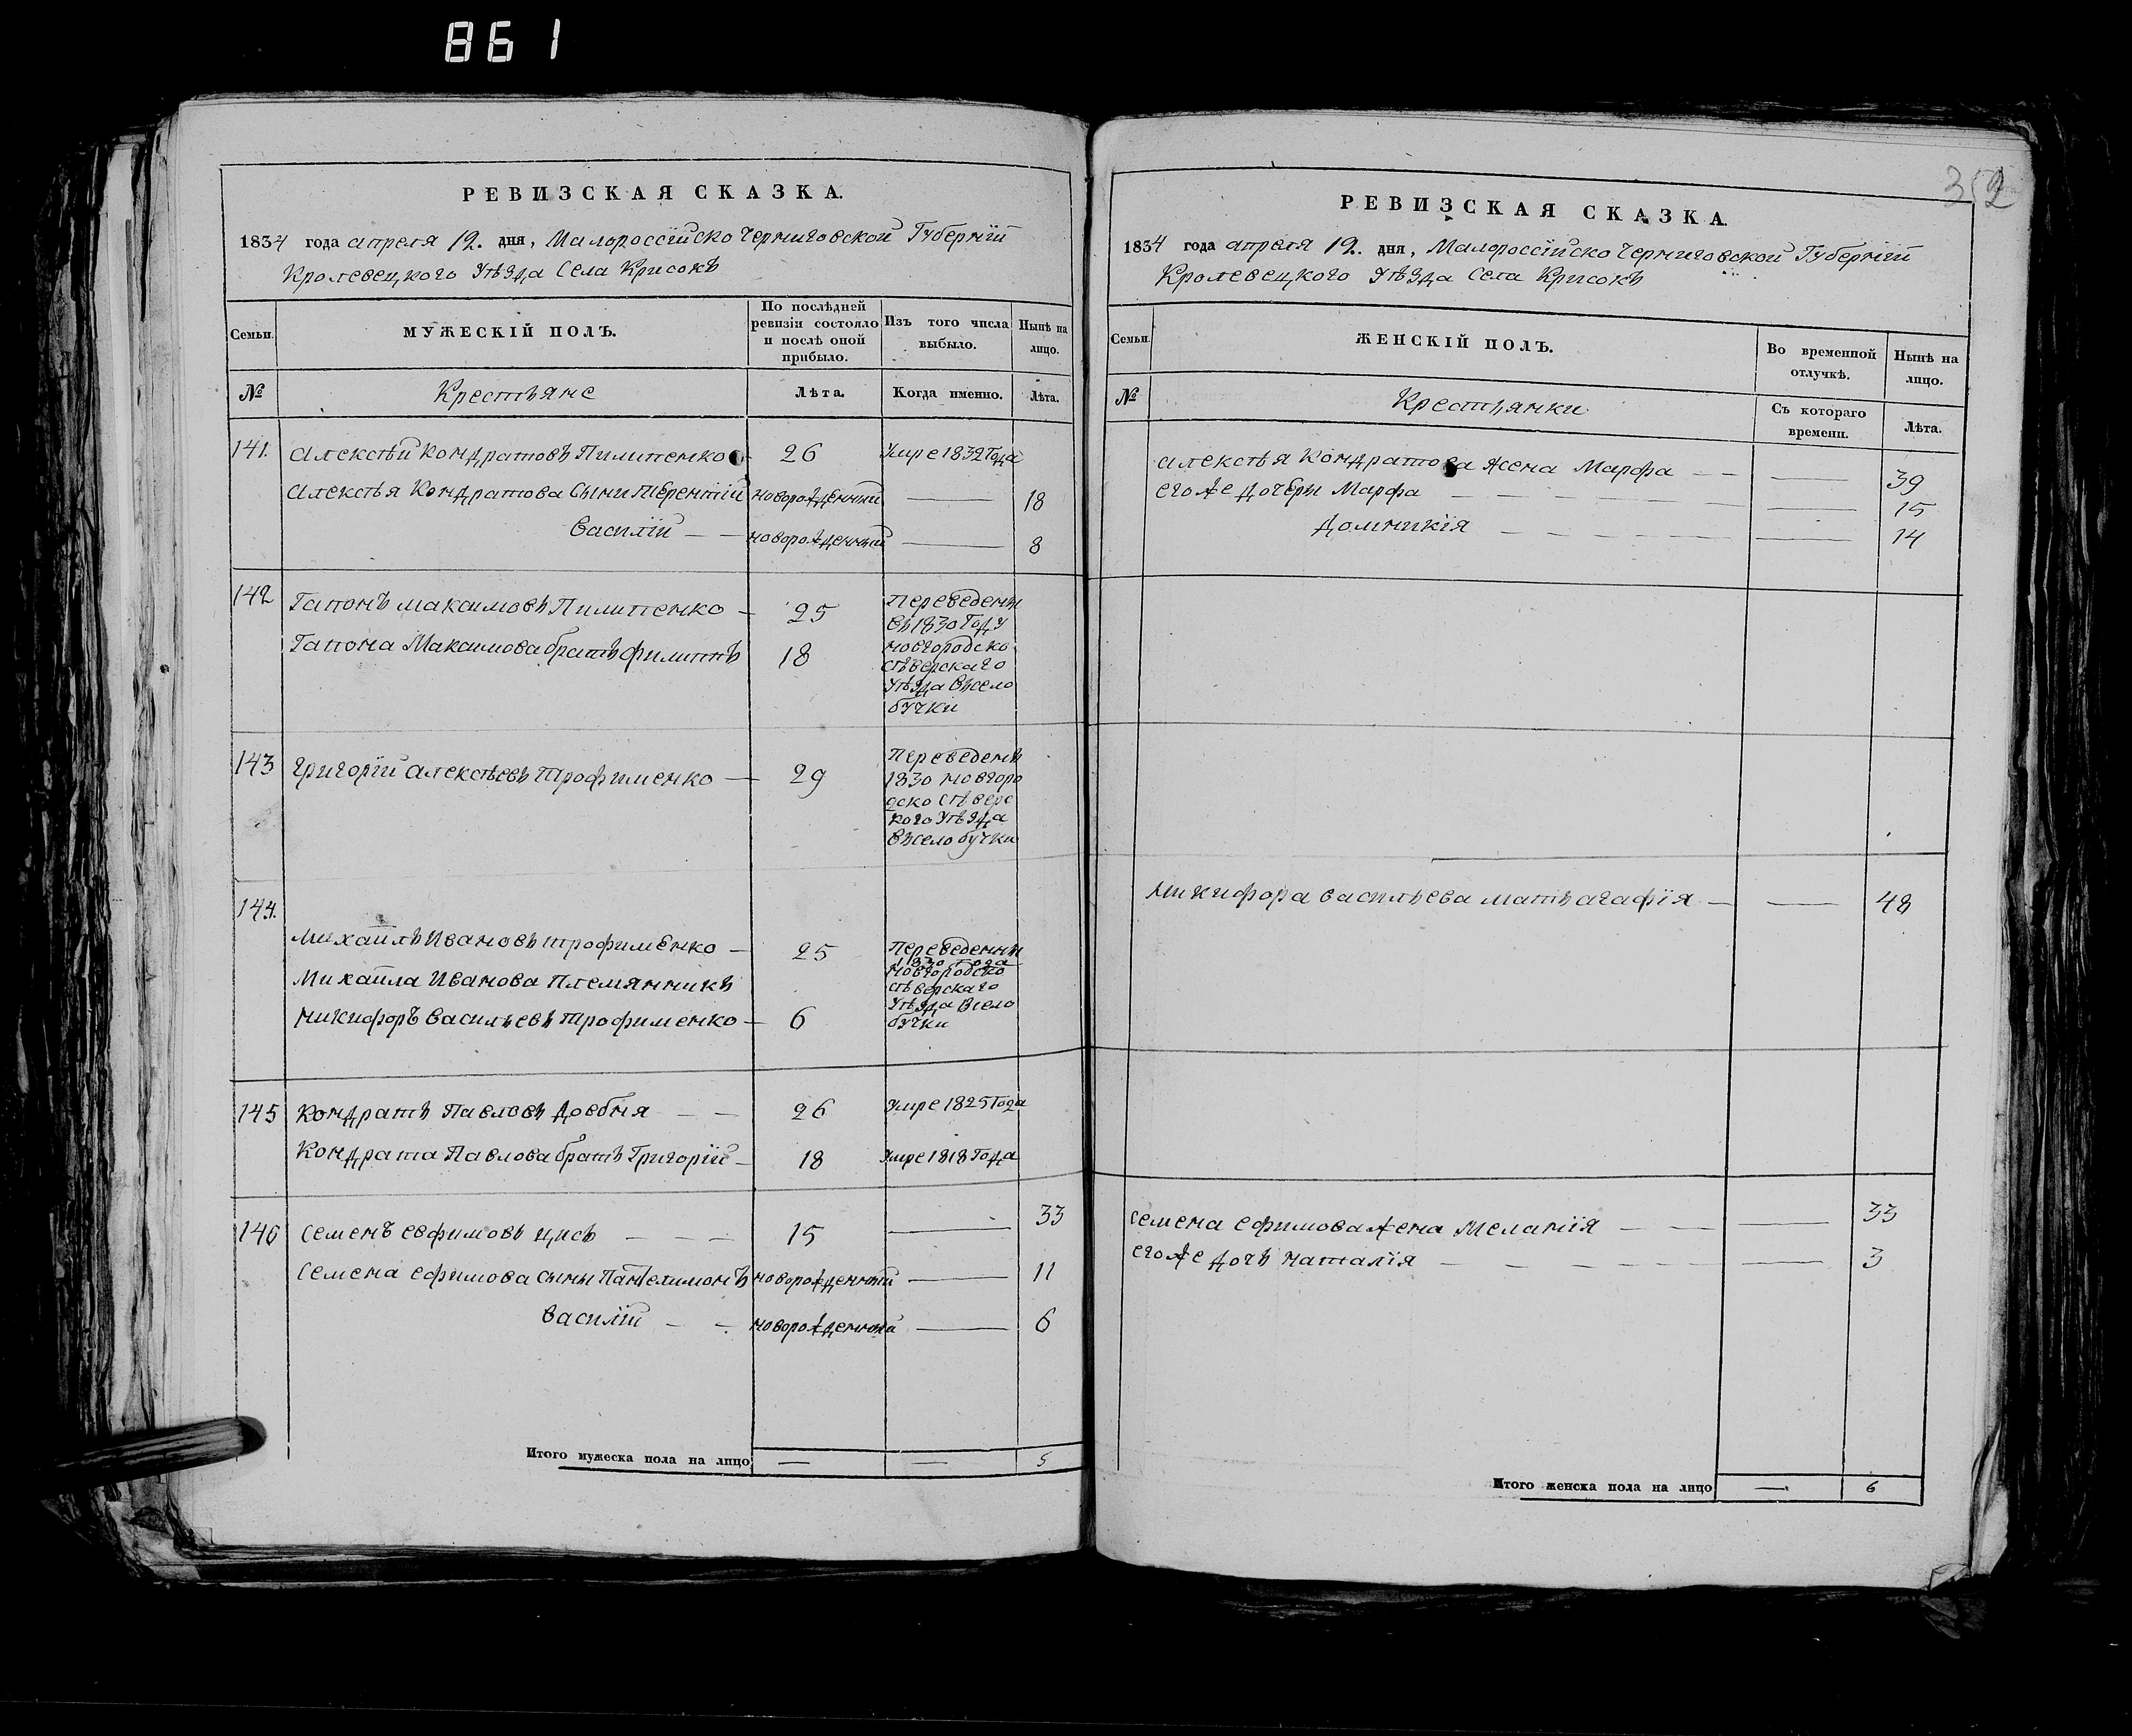 861
РЕВИЗСКАЯ СКАЗКА.
1834 года апреля 12. дня, Малороссійско Черниговской Губерніи
Кролевецкого Уѣзда Села Крисокъ
Семьи.
МУЖЕСКІЙ ПОЛЪ.
По послѣдней ревизіи состояло и послѣ оной прибыло.
Изъ того числа выбыло.
Нынѣ на лицо.
№
Крестьяне
Лѣта.
Когда именно.
Лѣта.
141. Алексѣй Кондратовъ Пилипенко 26 Умре 1832 Года
Алексѣя Кондратова Сыни Терентій новорожденный — 18
Василій — — новорожденный — 8
142 Гапонъ Максимовъ Пилипенко — 25
Гапона Максимова братъ Филиппъ 18
Переведены
въ 1830 Году
новгородско
сѣверскаго
Уѣзда Въсело
бучки
143 Григорій Алексѣевъ Трофименко — 29
Переведенъ
1830 Новгоро
дско Сѣверс
кого Уѣзда
Въсело бучки
144.
Михаилъ Ивановъ Трофименко — 25
Михаила Иванова Племянникъ
Никифоръ Васильевъ Трофименко — 6
Переведенны
1830 года
Новгородско
сѣверскаго
Уѣзда Всело
бучки
145 Кондратъ Павловъ Довбня — — 26 Умре 1825 Года
Кондрата Павлова братъ Григорій — 18 Умре 1818 Года
146 Семенъ Евфимовъ Цись — — — 15 — 33
Семена Ефимова сыны Пантелимонъ новорожденный — 11
Василій — — новорожденный — 6
Итого мужеска пола на лицо — — 5
352
РЕВИЗСКАЯ СКАЗКА.
1834 года апреля 12. дня, Малороссійско Черниговской Губерніи
Кролевецкого Уѣзда Села Крисокъ
Семьи.
ЖЕНСКІЙ ПОЛЪ.
Во временной отлучкѣ.
Нынѣ на лицо.
№
Крестьянки
Съ котораго времени.
Лѣта.
Алексѣя Кондратова Жена Марфа — — — 39
его же Дочери Марфа — — — — 15
Домникія — — — — — — — 14
Никифора Васильева мать Агафія — — 48
Семена Ефимова Жена Меланія — — — — 33
его же Дочь Наталія — — — — — — 3
Итого женска пола на лицо — 6